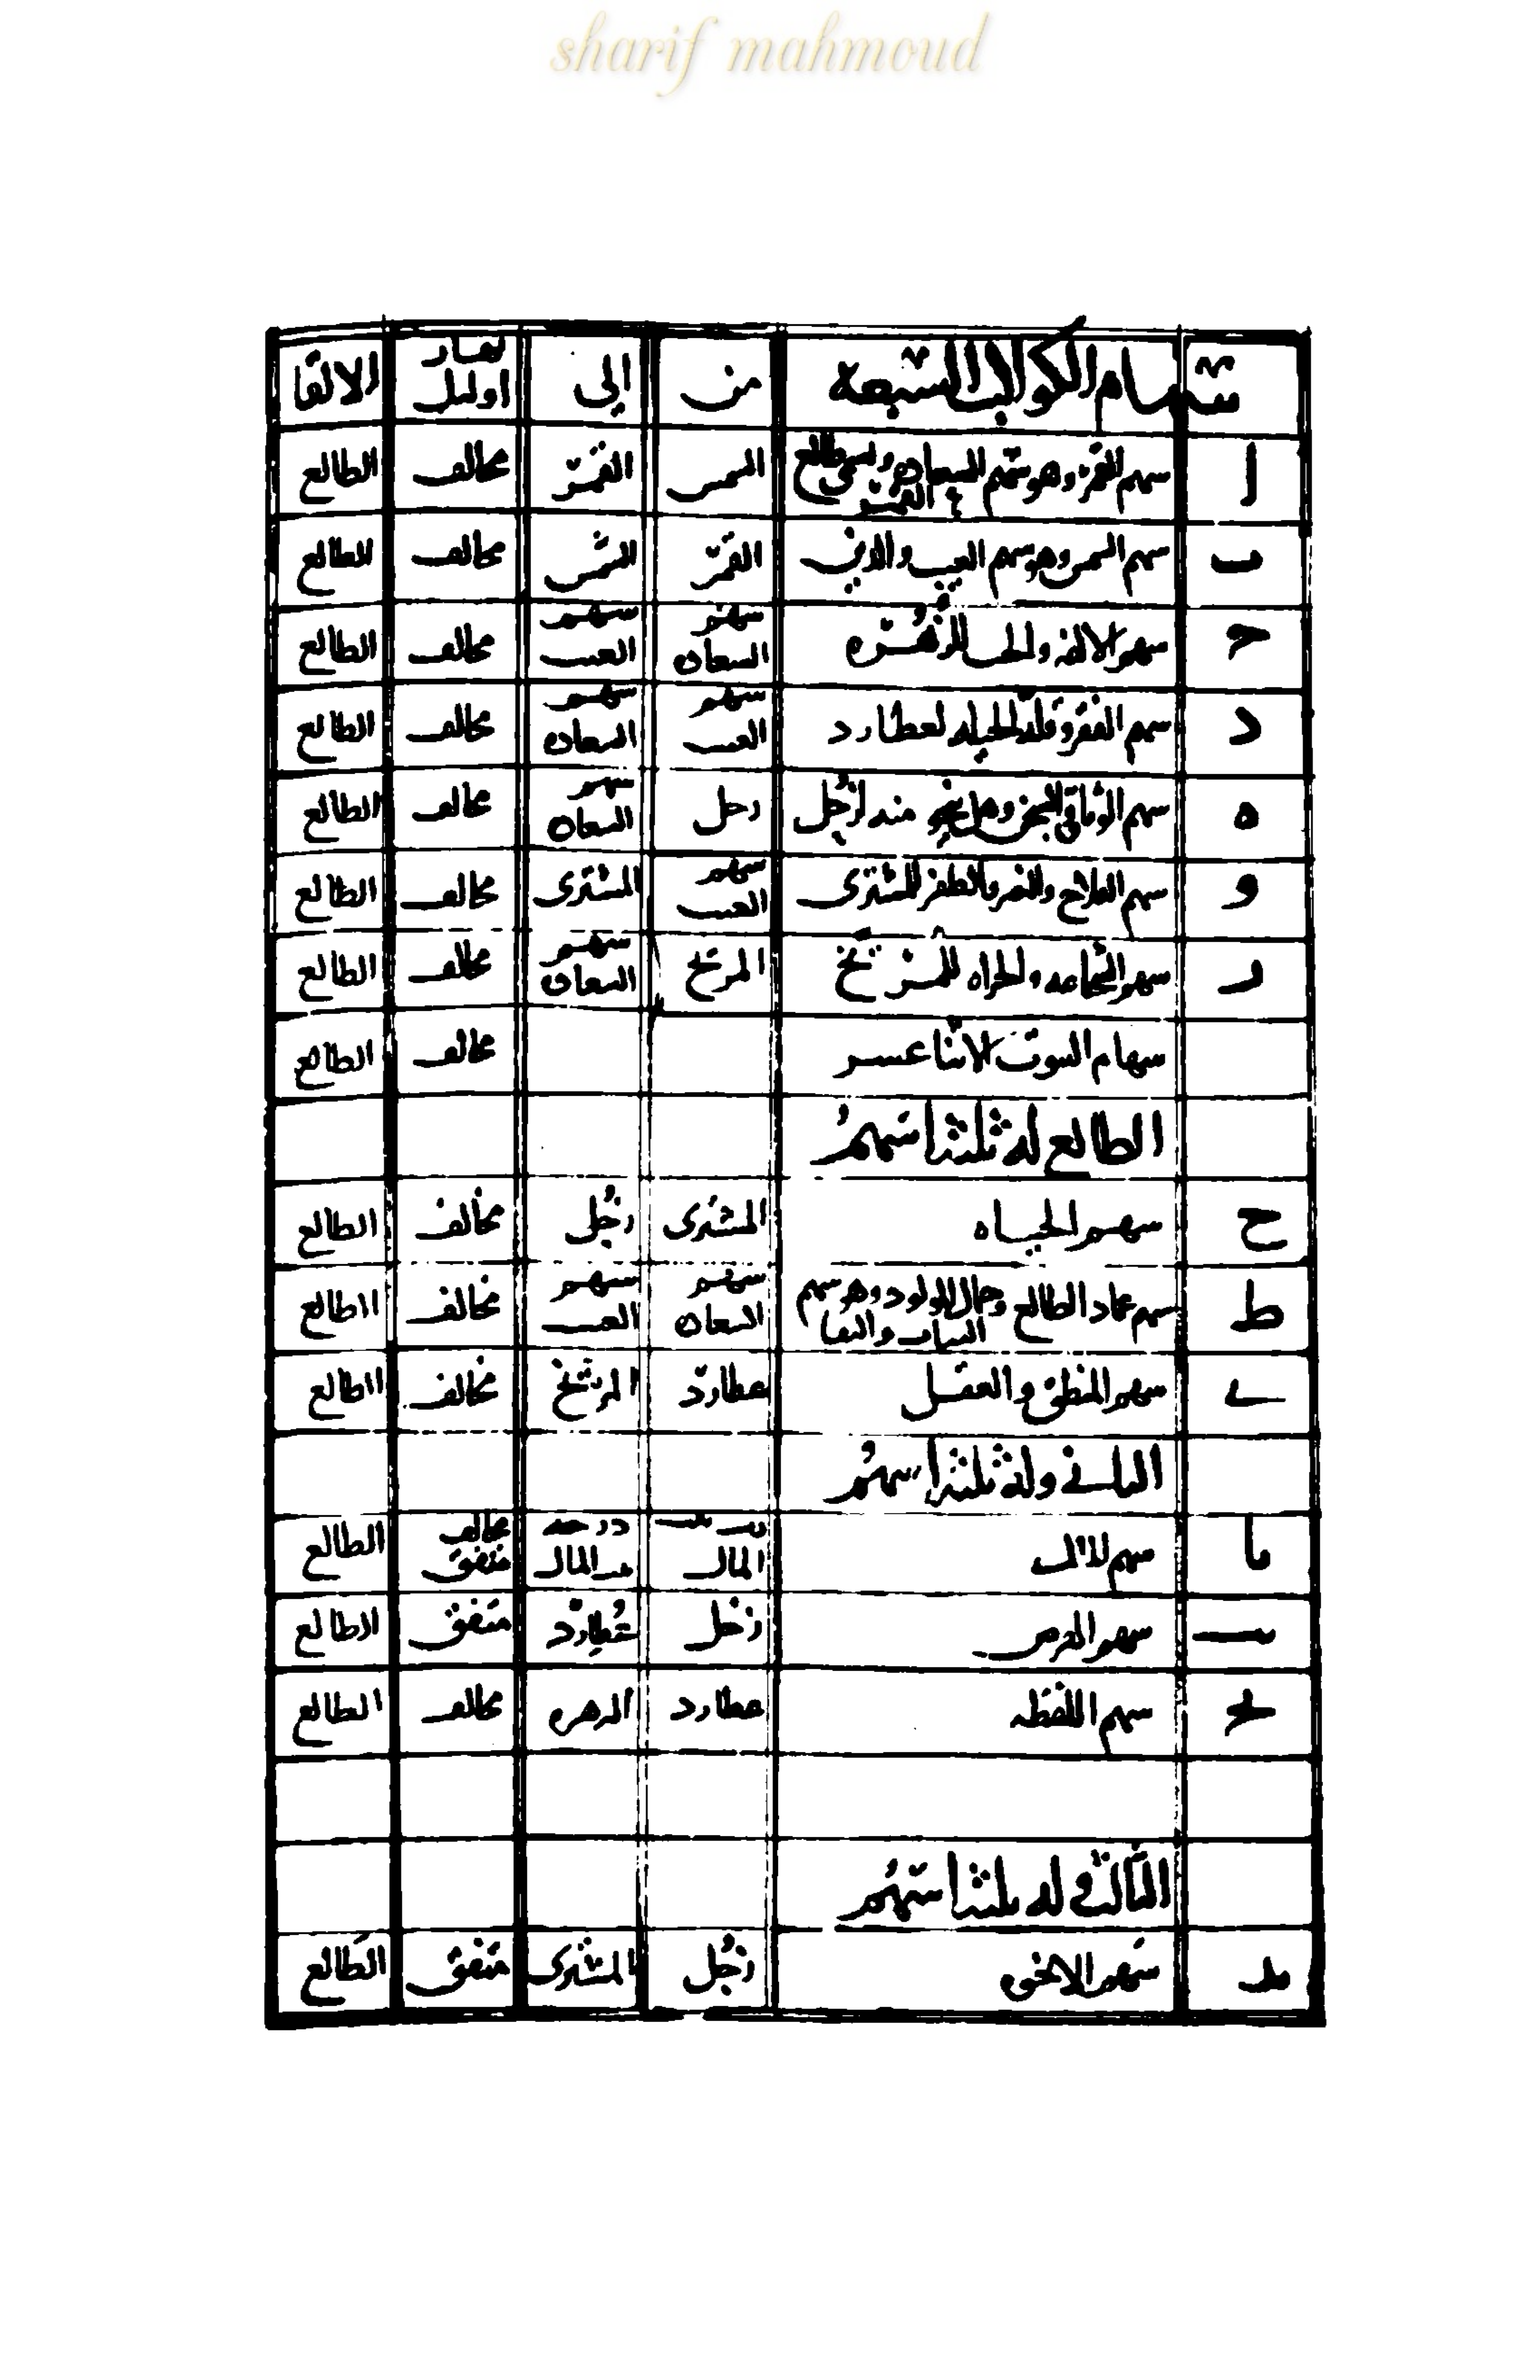 sharif mahmoud
سهام الكواكب السبعة من إلى نهار او ليل الالقا
ا سهم القمر وهو سهم السعاده ويسمى طالع القمر الشمس القمر مخالف الطالع
ب سهم الشمس وهو سهم الغيب والدين القمر الشمس مخالف الطالع
ج سهم الالفة والحب للزهره سهم السعاده سهم الغيب مخالف الطالع
د سهم الفقر وقلة الحيله لعطارد سهم الغيب سهم السعاده مخالف الطالع
ه سهم الوثاق والسجن وهل ينجو منه لزحل زحل سهم السعاده مخالف الطالع
و سهم الفلاح والنصر والظفر للمشترى سهم الغيب المشترى مخالف الطالع
ز سهم الشجاعه والجراه للمريخ المريخ سهم السعاده مخالف الطالع
سهام البيوت الاثنا عشر مخالف الطالع
الطالع له ثلثة اسهم
ح سهم الحياه المشترى زحل مخالف الطالع
ط سهم عماد الطالع وجمال المولود وهو سهم الثبات والبقا سهم السعاده سهم الغيب مخالف الطالع
ي سهم المنطق والعقل عطارد المريخ مخالف الطالع
الثاني وله ثلثة اسهم
يا سهم المال رب بيت المال درجة بيت المال مخالف متفق الطالع
يب سهم القرض زحل عطارد متفق الطالع
يج سهم اللقطه عطارد الزهره مخالف الطالع
الثالث له ثلثة اسهم
يد سهم الاخوه زحل المشترى متفق الطالع